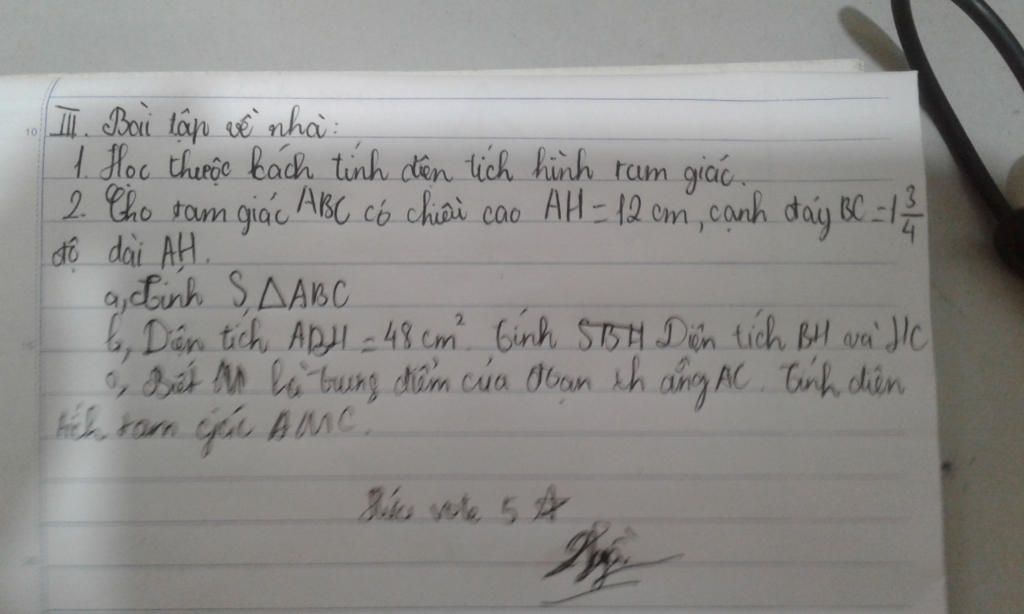 III. Bài tập về nhà:
1. Học thuộc cách tính diện tích hình tam giác.
2. Cho tam giác ABC có chiều cao AH = 12 cm, cạnh đáy BC = 1 3/4
độ dài AH.
a, Tính S, △ABC
b, Diện tích ABH = 48 cm². Tính SBH Diện tích BH và HC
c, Biết M là trung điểm của đoạn th ẳng AC. Tính diện
tích tam giác AMC.
5 ☆